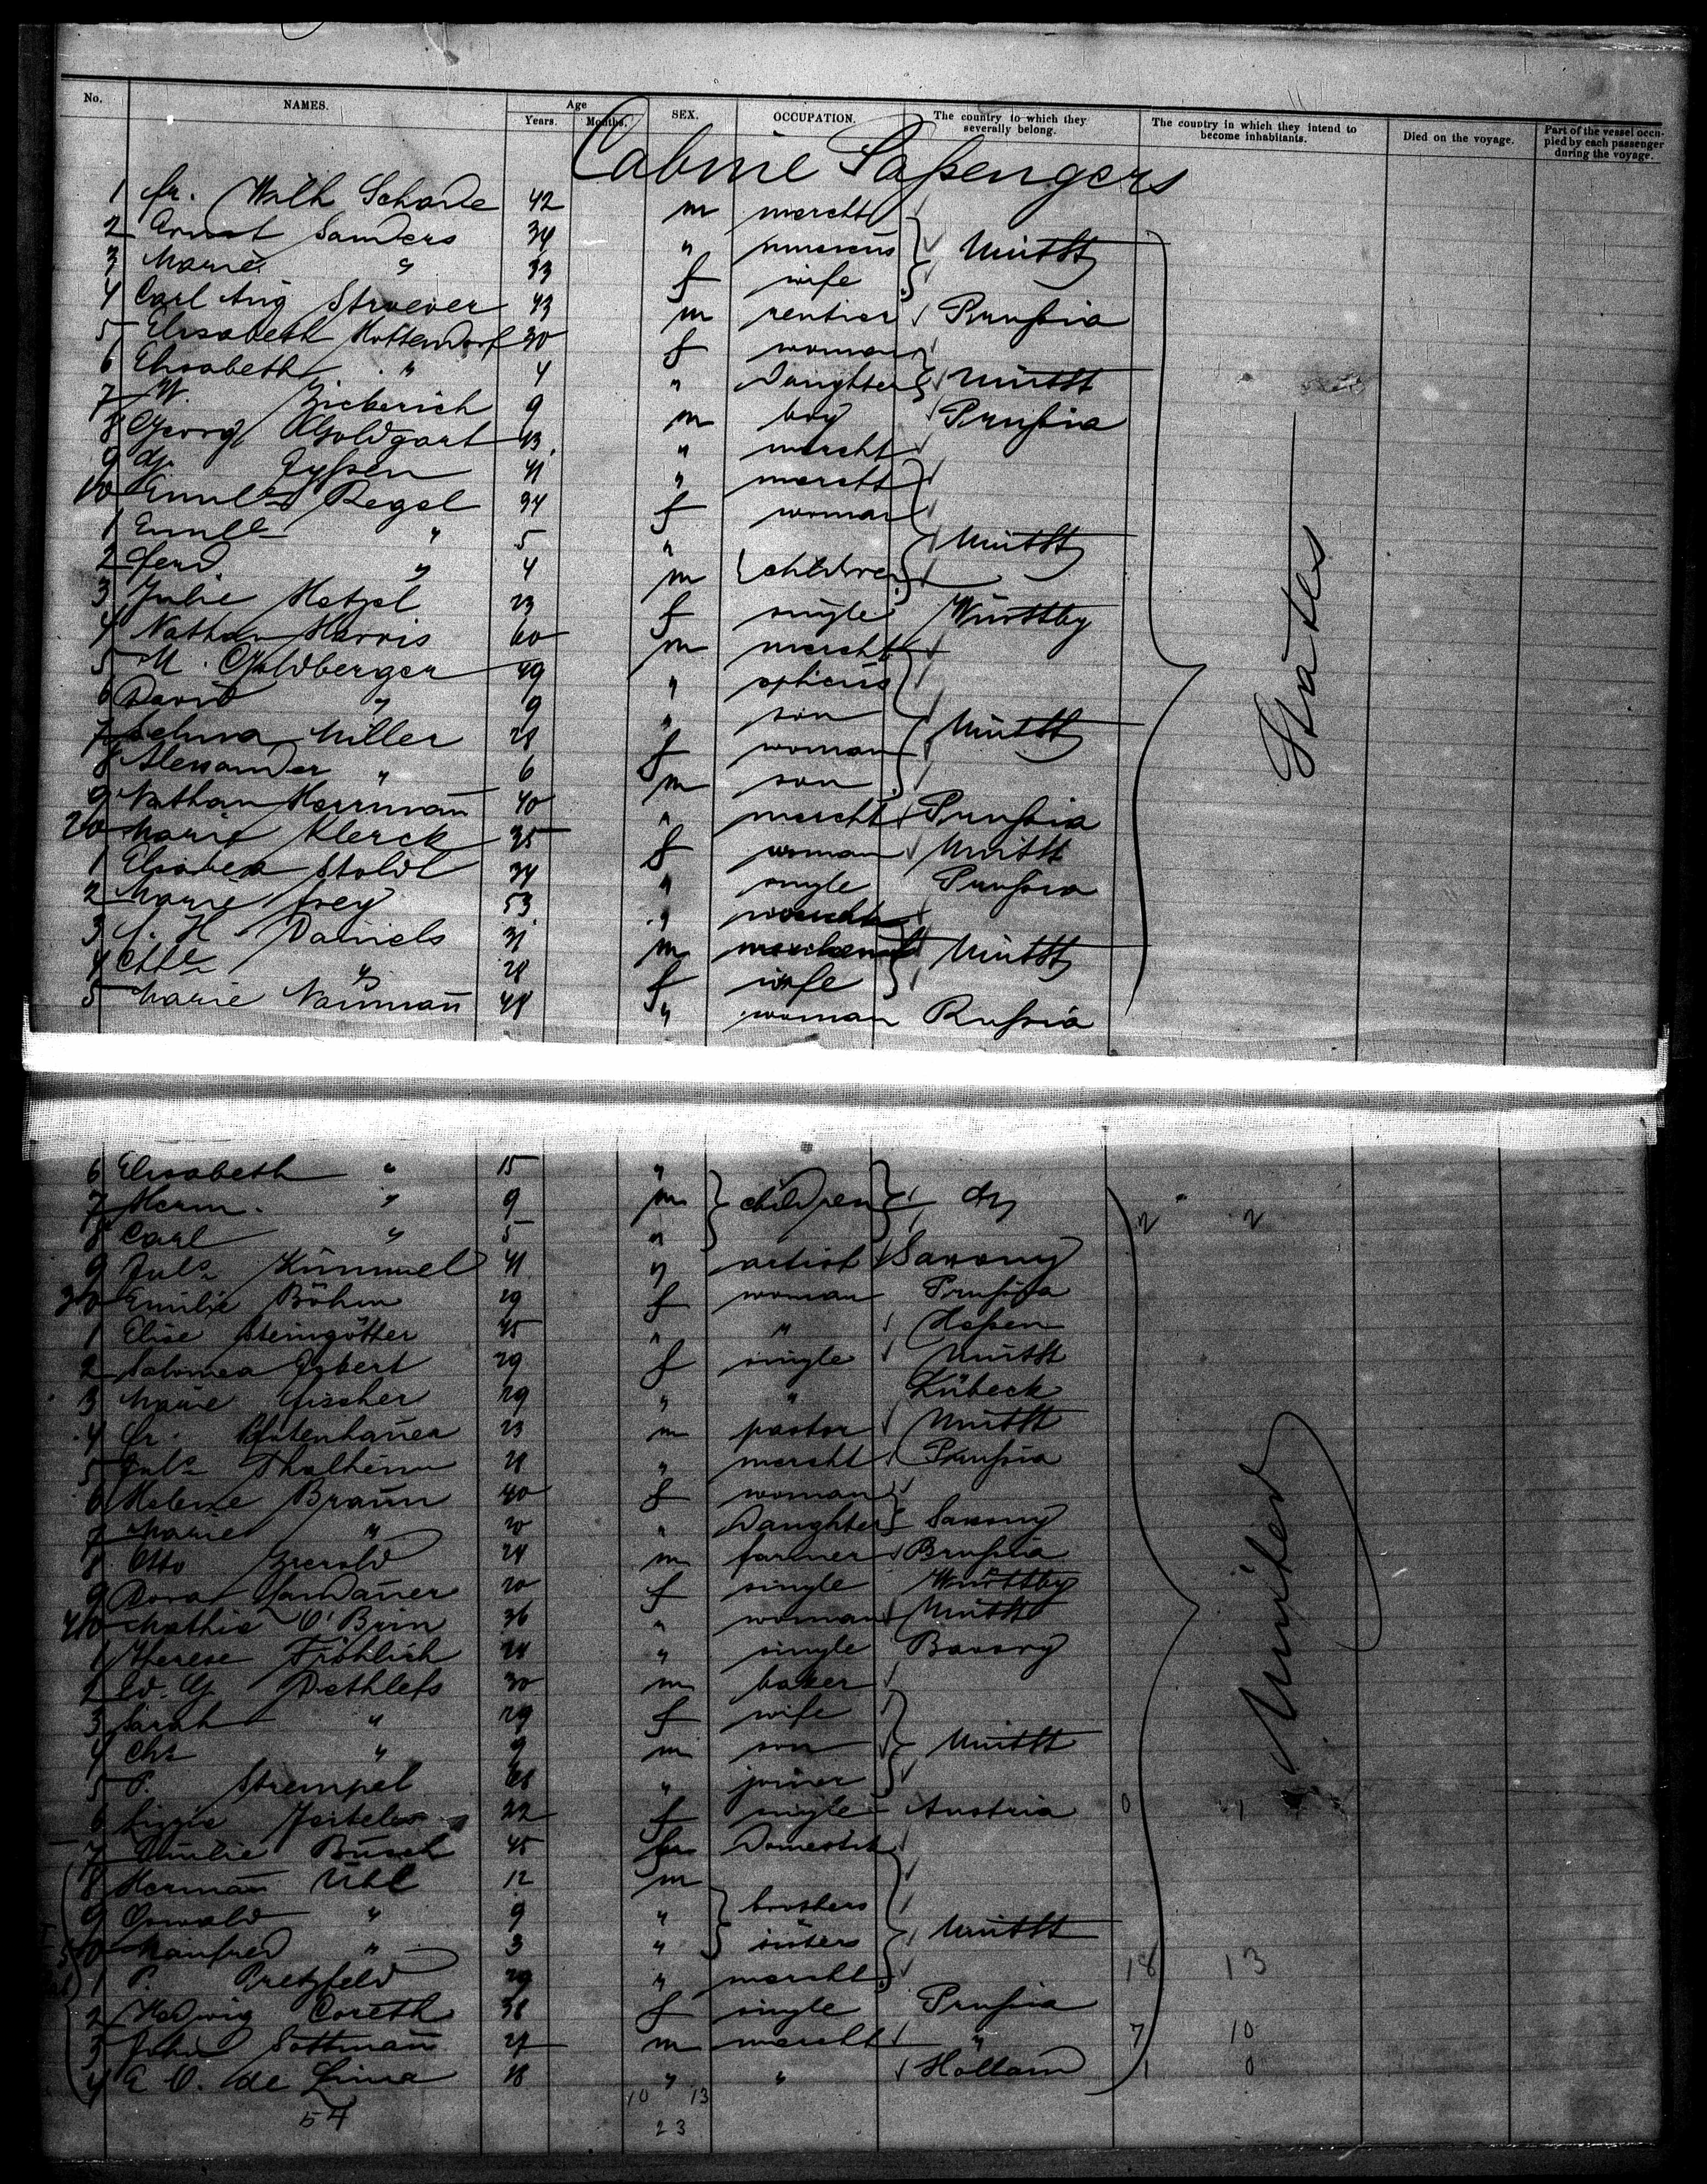 No. NAMES. Age Years. Months. SEX. OCCUPATION. The country to which they severally belong. The country in which they intend to become inhabitants. Died on the voyage. Part of the vessel occupied by each passenger during the voyage.
Cabine Paßengers
1 fr. Wilh Schade 42 m mercht
2 Ernst Sanders 34 " UnitSt
3 Marie " 33 f wife
4 Carl Aug Struever 43 m rentier Prußia
5 Elisabeth Hottendorf 30 f woman
6 Elisabeth " 4 " Daughter UnitSt
7 W. Zickerich 9 m boy Prußia
8 Georg Goldgart 43 " mercht
9 41 " mercht
10 Regel 34 f woman
1 " 5 " UnitSt
2 ferd " 4 m children
3 Julie Hetzel 23 f single Württbg
4 Nathan Harris 60 m mercht
5 M. Goldberger 49 " opticus
6 David " 9 " son UnitSt
7 Selma Miller 28 f woman
8 Alexander " 6 m son
9 Nathan Herrman̄ 40 " mercht Prußia
20 Marie Klerck 35 f woman UnitSt
1 Stoldt 34 " single Prußia
2 Marie frey 53 "
3 H Daniels 31 m UnitSt
4 " 28 f wife
5 Marie Nauman̄ 48 " woman Rußia
6 Elisabeth " 15 "
7 Herm. " 9 m children
8 Carl " 5 "
9 Juls Kümmel 41 " artist Saxony
30 Emilie Böhm 29 f woman Prußia
1 Elise Steingötter 45 " " Heßen
2 Salomea Egbert 29 f single UnitSt
3 Marie fischer 29 " " Lübeck
4 fr. 23 m pastor UnitSt
5 Juls Thalheim 28 " mercht Prußia
6 Helene Braun 40 f woman
7 Marie " 20 " Daughter Saxony
8 Otto Gerold 24 m farmer Prußia
9 Dora Landauer 20 f single Württbg
40 Mathie O'Brin 36 " woman UnitSt
1 Therese Fröhlich 28 " single Bavary
2 Dethlefs 30 m baker
3 Sarah " 29 f wife
4 Chs " 9 m son UnitSt
5 P. Strempel " joiner
6 Lizzie Jeiteles 22 f single Austria
7 Emilie Busch 45 Domestik
8 Herman̄ Uhl 12 m
9 Oswald " 9 " brothers
50 Manfred " 3 " sisters UnitSt
1 P. Bretzfeld 29 " mercht 18 13
2 Hedwig Coreth 38 f single Prußia
3 John Sottman̄ 27 m mercht " 7 10
4 E O. de Lima 18 " " Holland 1 0
54 10 13
23
United States